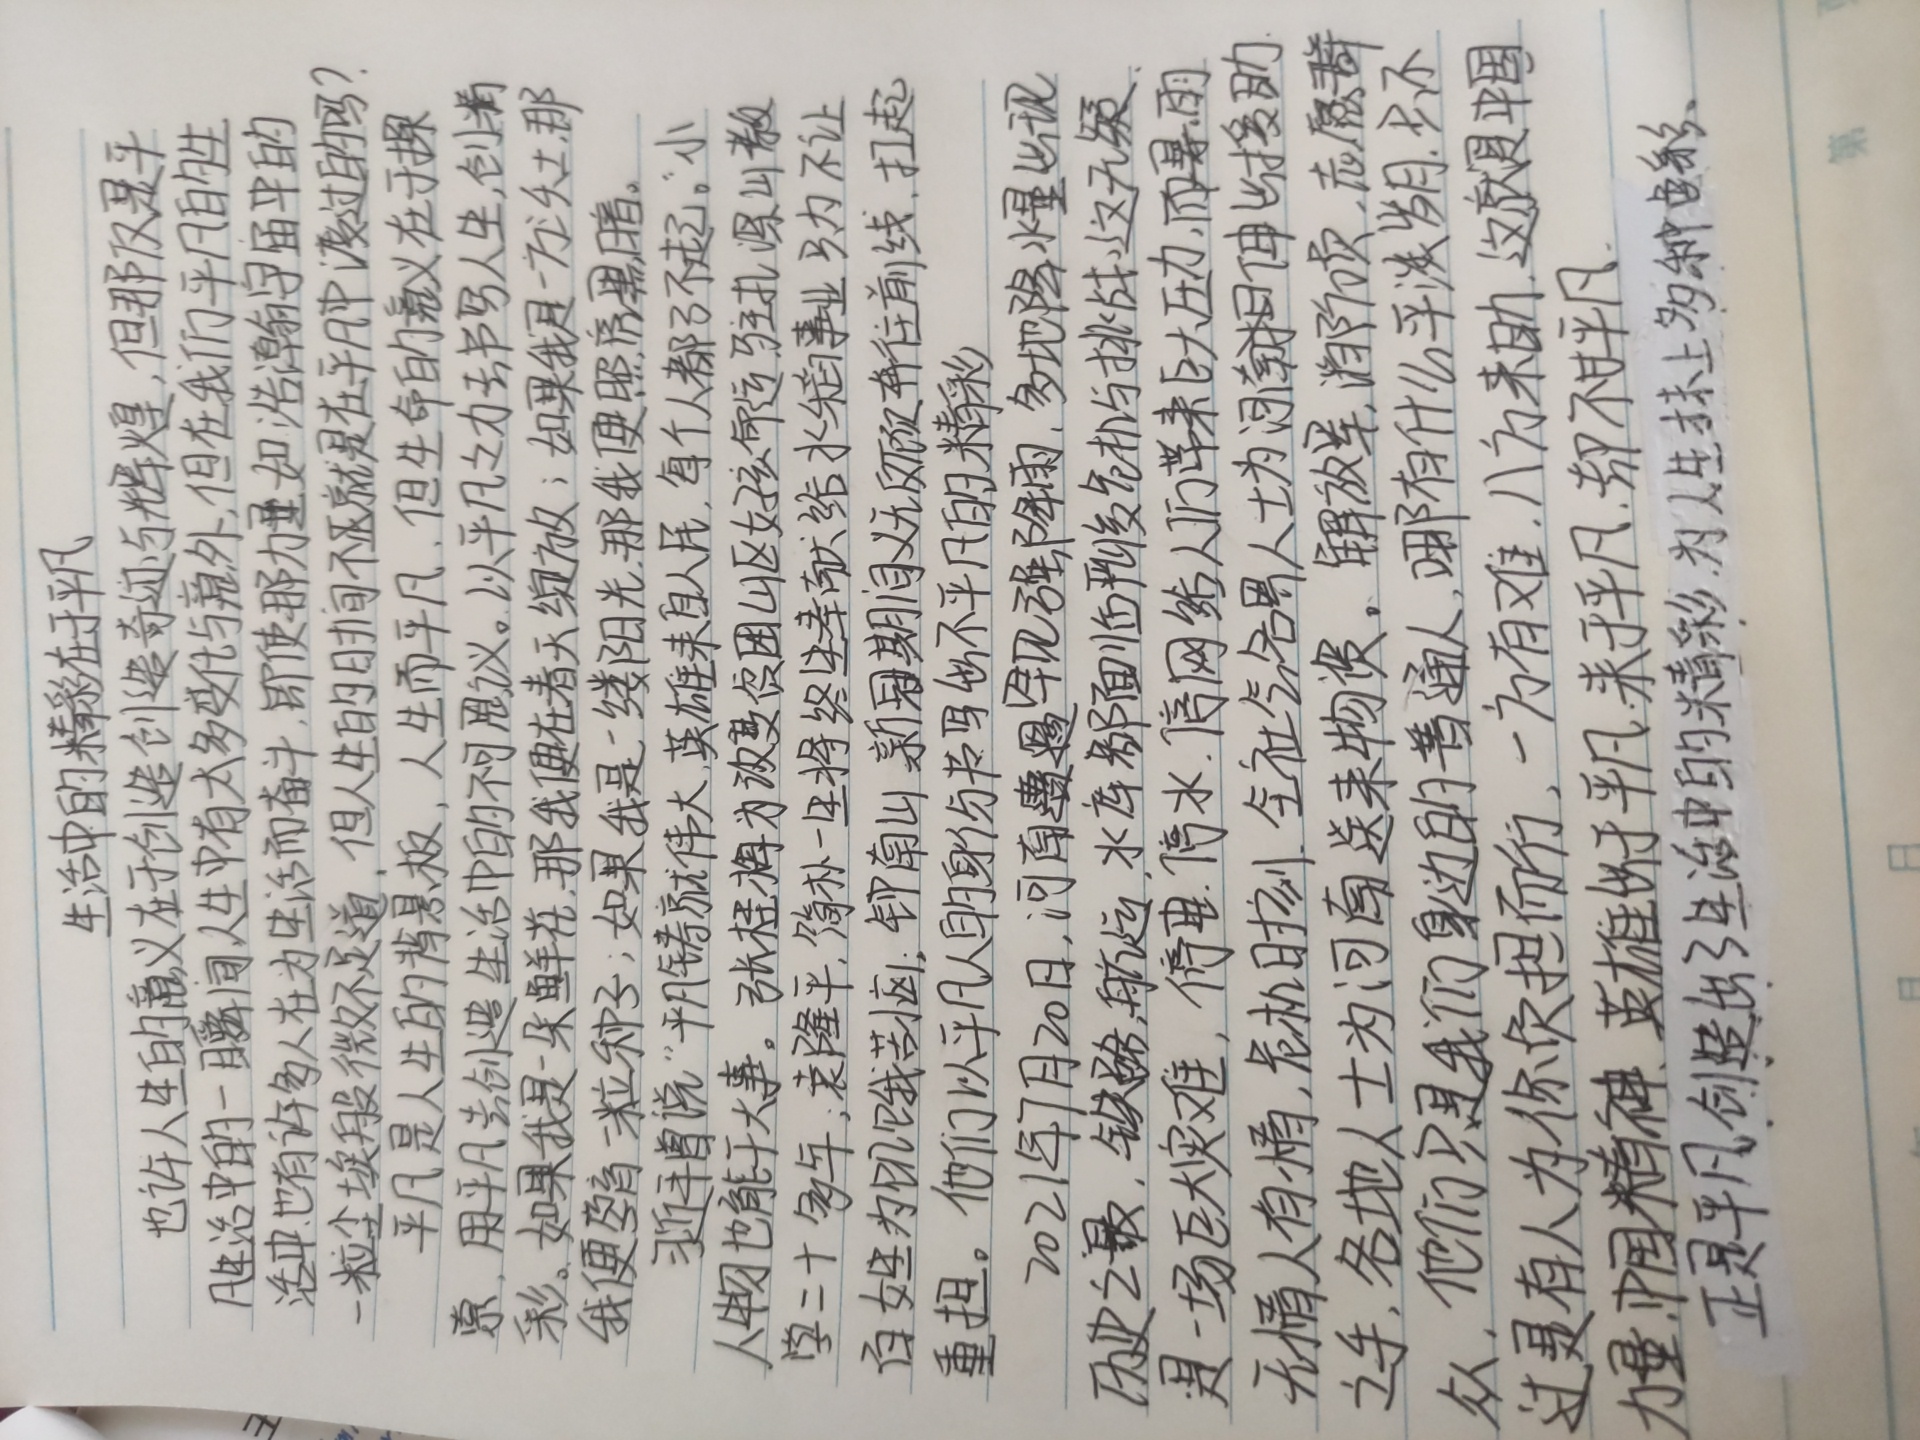 生活中的精彩在于平凡
也许人生的意义在于创造创造奇迹与辉煌，但那仅是平
凡生活中的一瞬间，人生中有太多变化与意外，但在我们平凡的生
活中，也有许多人在为生活而奋斗，即使那力量如浩瀚宇宙中的
一粒尘埃般微不足道，但人生的时间不就是在平凡中渡过的吗？
平凡是人生的背景板，人生而平凡，但生命的意义在于探
索，用平凡去创造生活中的不可思议。以平凡之力去书写人生，创造
彩。如果我是一朵鲜花，那我便在春天绽放；如果我是一方沃土，那
我便孕育一粒种子；如果我是一缕阳光，那我便照亮黑暗。
习近平曾说“平凡铸就伟大，英雄来自人民，每个人都了不起。”小
人物也能干大事。张桂梅为改变贫困山区女孩命运驻扎深山教
学二十多年；袁隆平，简朴一生将终生奉献给水稻事业只为不让
百姓为饥饿苦恼；钟南山新冠期间义无反顾奔往前线，扛起
重担。他们以平凡人的身份书写出不平凡的精彩
2021年7月20日，河南遭遇罕见强降雨，多地降水量出现
历史之最，铁路，航运，水库都面临严峻危机与挑战，这无疑
是一场巨大灾难，停电，停水，停网给人们带来巨大压力，而暴雨
无情人有情，危机时刻，全社会各界人士为河南同胞伸出援助
之手，各地人士为河南送来物资。解放军，消防员，志愿群
众，他们只是我们身边的普通人，哪有什么平淡岁月，只不
过是有人为你负担而行，一方有难，八方来助，这就是中国
力量，中国精神，英雄出于平凡，来于平凡，却不甘平凡．
正是平凡，创造出了生活中的精彩，为人生抹上多种色彩、